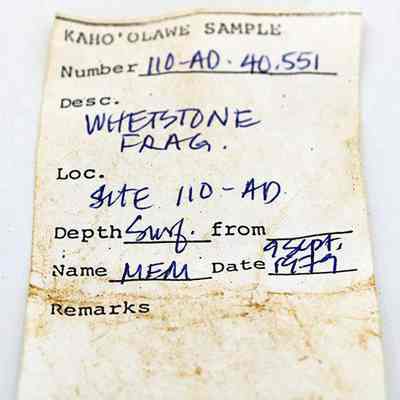 KAHO'OLAWE SAMPLE
Number 110-AD. 40.551
Desc.
WHETSTONE
FRAG.
Loc.
SITE 110-AD
Depth Surf. from
9 Sept.
Name MEM Date 1979
Remarks